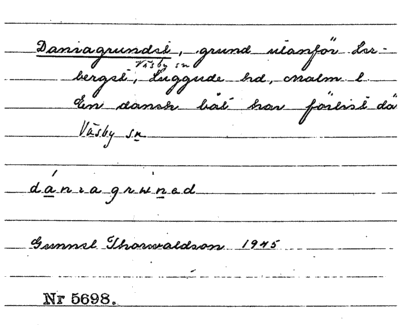 Daniagrundet, grund utanför Ler-
Väsby sn
berget, Luggude hd, Malm. l.
En dansk båt har förlist då
Väsby sn
dániagruned
Gunnel Thorwaldson 1945
Nr 5698.